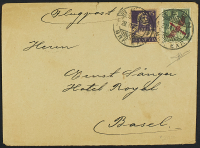 Flugpost
Herrn
Ernst Sänger
Hotel Royal
Basel